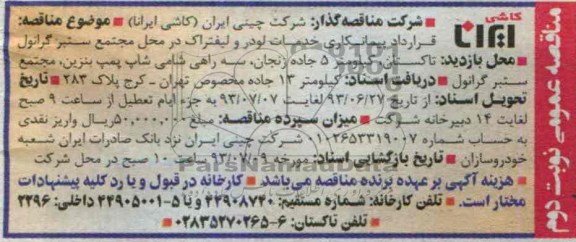 مناقصه عمومی نوبت دوم
کاشی ایرانا
■ شرکت مناقصه‌گذار: شرکت چینی ایران (کاشی ایرانا) ■ موضوع مناقصه:
قرارداد پیمانکاری خدمات لودر و لیفتراک در محل مجتمع ستبر گرانول
■ محل بازدید: تاکستان، کیلومتر ۵ جاده زنجان، سه راهی شامی شاپ پمپ بنزین، مجتمع
ستبر گرانول ■ دریافت اسناد: کیلومتر ۱۳ جاده مخصوص تهران - کرج پلاک ۲۸۳ ■ تاریخ
تحویل اسناد: از تاریخ ۹۳/۰۶/۲۷ لغایت ۹۳/۰۷/۰۷ به جزء ایام تعطیل از ساعت ۹ صبح
لغایت ۱۴ دبیرخانه شرکت ■ میزان سپرده مناقصه: مبلغ ۵۰,۰۰۰,۰۰۰ ریال واریز نقدی
به حساب شماره ۰۱۰۲۶۵۳۳۱۹۰۰۷ شرکت چینی ایران نزد بانک صادرات ایران شعبه
خودروسازان ■ تاریخ بازگشایی اسناد: مورخه ۹۳/۰۷/۰۹ ساعت ۱۰ صبح در محل شرکت
■ هزینه آگهی بر عهده برنده مناقصه می‌باشد ■ کارخانه در قبول و یا رد کلیه پیشنهادات
مختار است. ■ تلفن کارخانه: شماره مستقیم: ۴۴۹۰۸۷۴۰ و یا ۵-۴۴۹۰۵۰۰۱ داخلی: ۲۲۹۶
■ تلفن تاکستان: ۶-۰۲۸۳۵۲۷۰۲۶۵